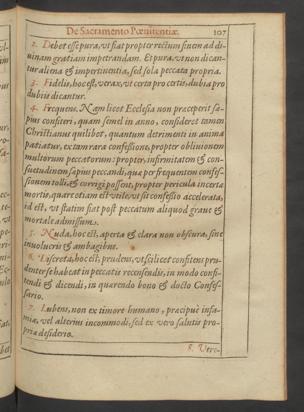 De Sacramento Pœnitentiæ. 107
2. Debet esse pura, vt fiat propter rectum finem ad di-
uinam gratiam impetrandam. Et pura, vt non dican-
tur aliena & impertinentia, sed sola peccata propria.
3. Fidelis, hoc est, verax, vt certa pro certis, dubia pro
dubiis dicantur.
4. Frequens. Nam licet Ecclesia non præceperit sæ-
pius confiteri, quam semel in anno, consideret tamen
Christianus quilibet, quantum detrimenti in anima
patiatur, ex tam rara confessione, propter obliuionem
multorum peccatorum: propter infirmitatem & con-
suetudinem sæpius peccandi, qua per frequentem confes-
sionem tolli, & corrigi possent, propter pericula incerta
mortis, quare etiam est vtile, vt sit confessio accelerata,
id est, vt statim fiat post peccatum aliquod graue &
mortale admissum.
5. Nuda, hoc est, aperta & clara non obscura, sine
inuolucris & ambagibus.
6. Discreta, hoc est, prudens, vt scilicet confitens pru-
denter se habeat in peccatis recensendis, in modo confi-
tendi & dicendi, in quærendo bono & docto Confes-
sario.
7. Lubens, non ex timore humano, præcipuè infa-
miæ, vel alterius incommodi, sed ex vero salutis pro-
priæ desiderio.
8. Vere-